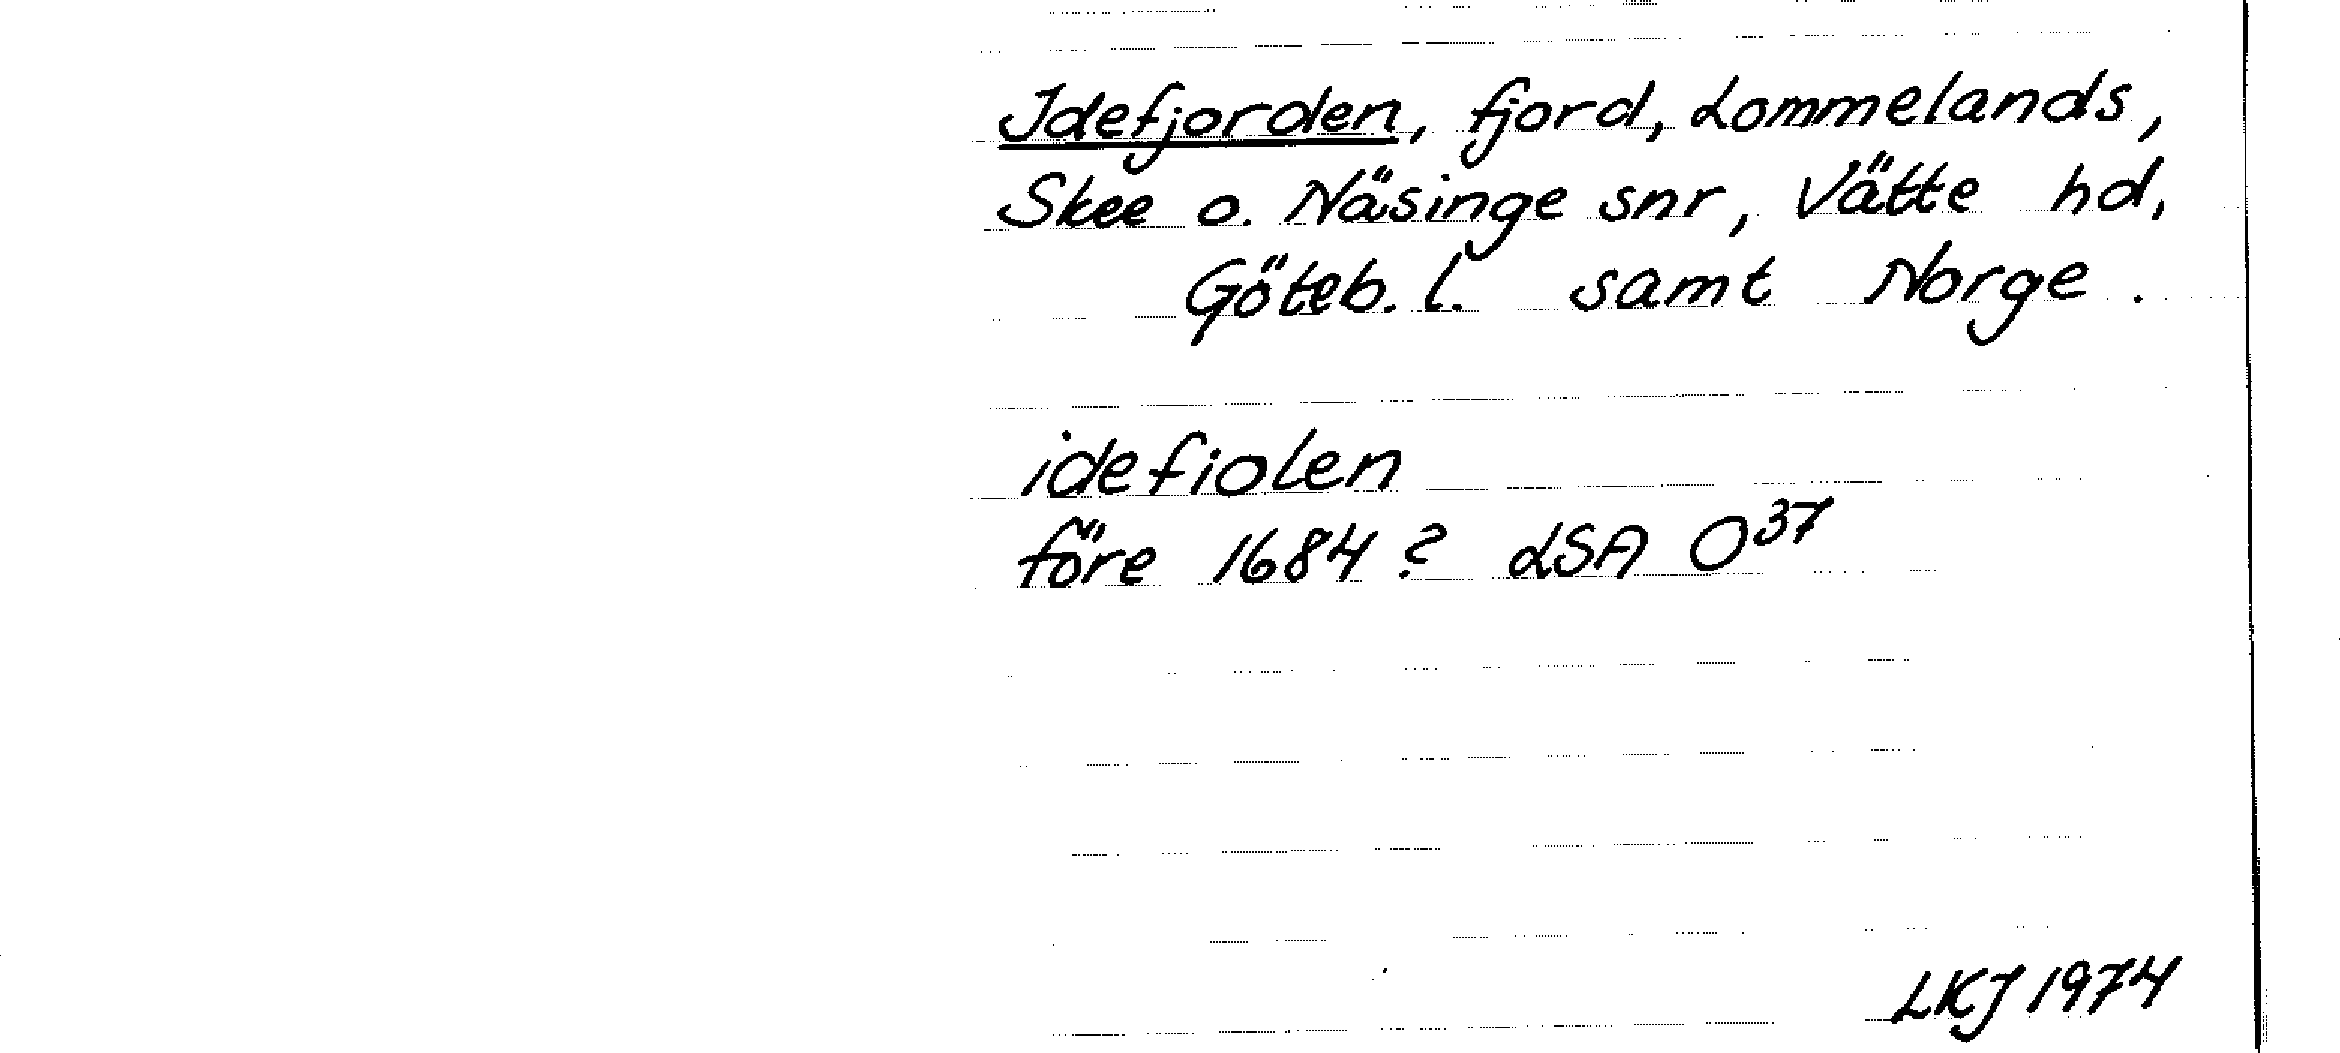 Idefjorden, fjord, Lommelands,
Skee o. Näsinge snr, Vätte hd,
Göteb. l. samt Norge.
idefiolen
före 1684? LSA O³⁷
LKJ 1974